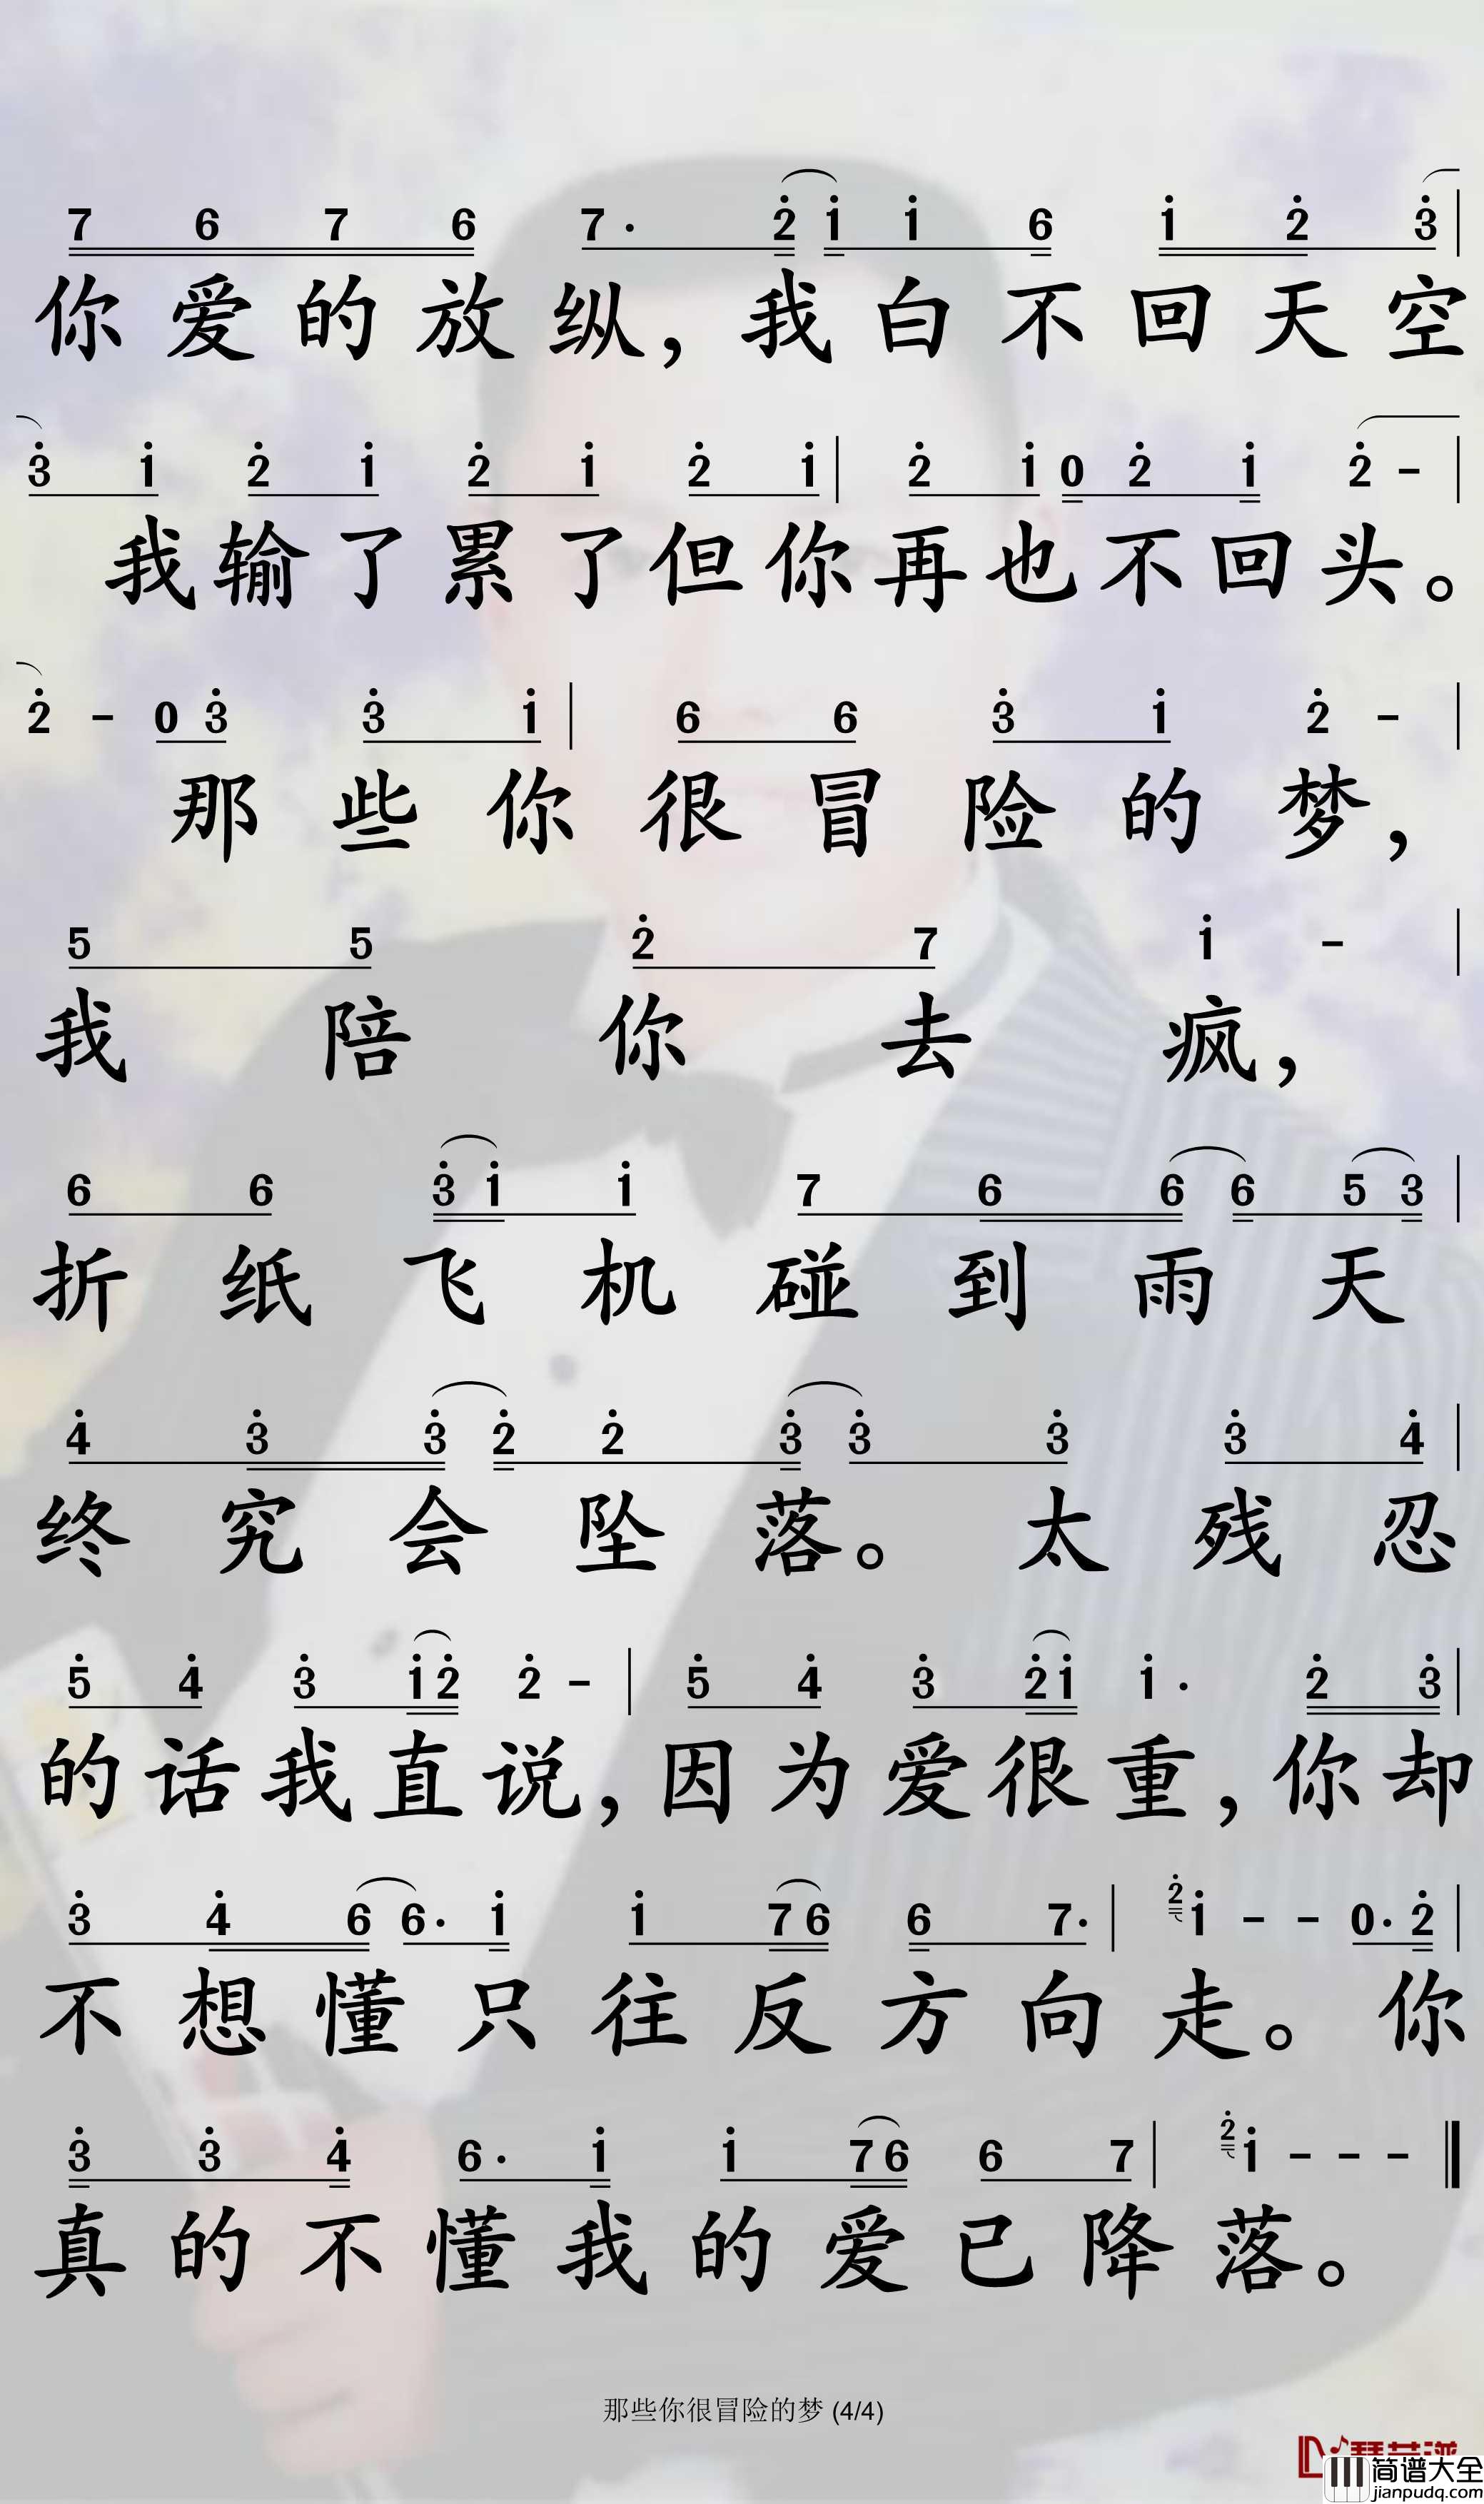 7 6 7 6 7· 2̇ 1̇ 1̇ 6 1̇ 2̇ 3̇ |
你爱的放纵，我白不回天空
3̇ 1̇ 2̇ 1̇ 2̇ 1̇ 2̇ 1̇ | 2̇ 1̇ 0 2̇ 1̇ 2̇ - |
我输了累了但你再也不回头。
2̇ - 0 3̇ 3̇ 1̇ | 6 6 3̇ 1̇ 2̇ - |
那些你很冒险的梦，
5 5 2̇ 7 1̇ - |
我陪你去疯，
6 6 3̇ 1̇ 1̇ 7 6 6 6 5 3 |
折纸飞机碰到雨天
4̇ 3̇ 3̇ 2̇ 2̇ 3̇ 3̇ 3̇ 3̇ 4̇ |
终究会坠落。太残忍
5̇ 4̇ 3̇ 1̇ 2̇ 2̇ - | 5̇ 4̇ 3̇ 2̇ 1̇ 1̇· 2̇ 3̇ |
的话我直说，因为爱很重，你却
3̇ 4̇ 6 6· 1̇ 1̇ 7 6 6 7· | 2̇ 1̇ - - 0· 2̇ |
不想懂只往反方向走。你
3̇ 3̇ 4̇ 6· 1̇ 1̇ 7 6 6 7 | 2̇ 1̇ - - -
真的不懂我的爱已降落。
那些你很冒险的梦 (4/4)
简谱大全
jianpudq.com